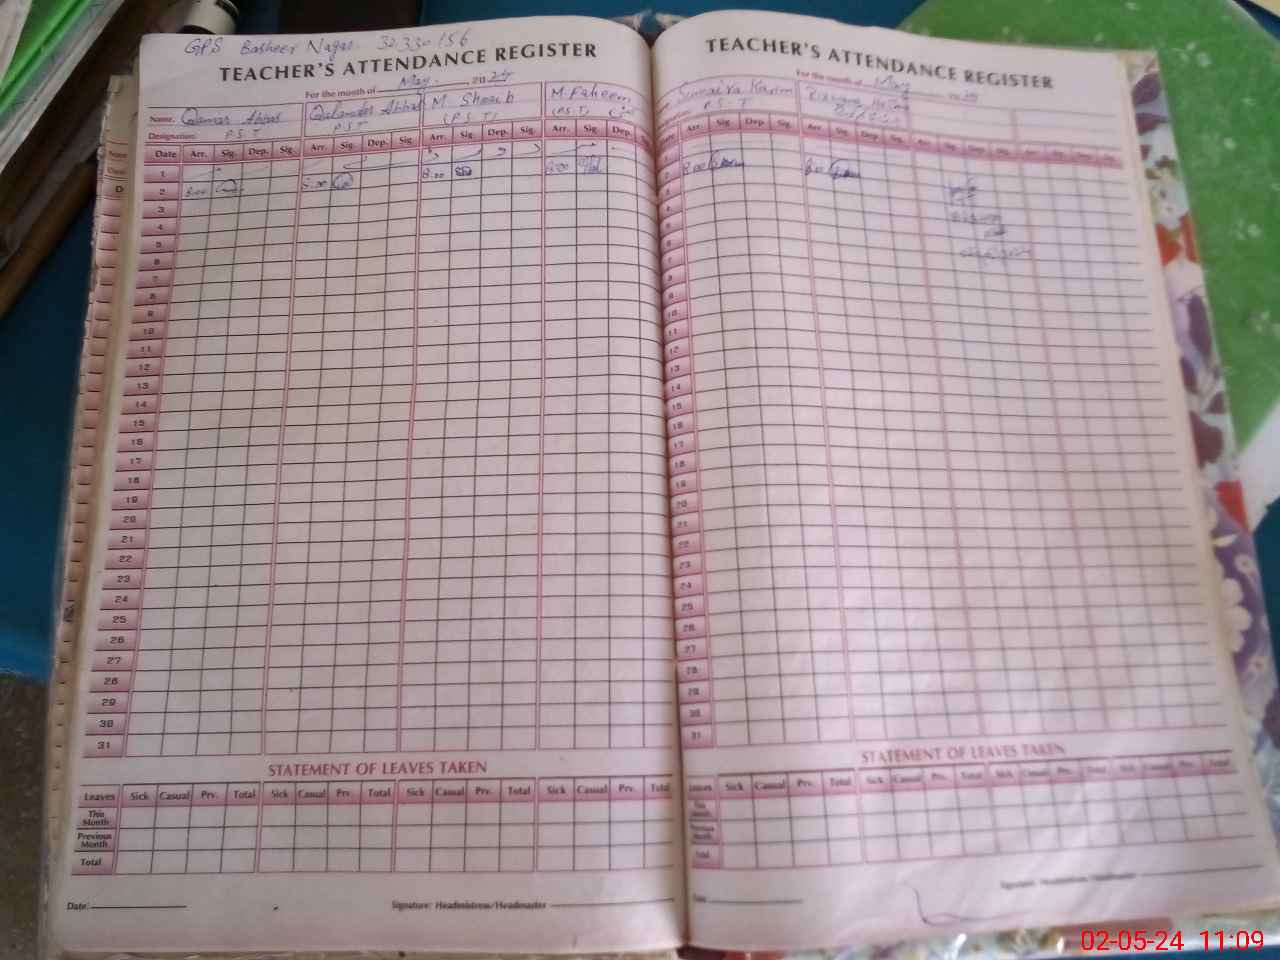 GPS Basheer Nagar. 32330156
TEACHER'S ATTENDANCE REGISTER
For the month of May. 2024
Name. Qamar Abbas Qalandar Abbas M. Shoaib M. Faheem
Designation: P.S.T P.S.T (P.S.T) (P.S.T)
Date Arr. Sig. Dep. Sig. Arr. Sig. Dep. Sig. Arr. Sig. Dep. Sig. Arr. Sig. Dep.
1
2 8.00 8.00 8.00 8.00
3
4
5
6
7
8
9
10
11
12
13
14
15
16
17
18
19
20
21
22
23
24
25
26
27
28
29
30
31
STATEMENT OF LEAVES TAKEN
Leaves Sick Casual Prv. Total Sick Casual Prv. Total Sick Casual Prv. Total Sick Casual Prv. Total
This Month
Previous Month
Total
Date: Signature: Headmistress/Headmaster
TEACHER'S ATTENDANCE REGISTER
For the month of May
Sumaira Karim
P.S.T
Arr. Sig. Dep. Sig. Arr. Sig. Dep. Sig. Arr. Sig. Dep. Sig.
1
2 8.00 8.00
3
4
5
6
7
8
9
10
11
12
13
14
15
16
17
18
19
20
21
22
23
24
25
26
27
28
29
30
31
STATEMENT OF LEAVES TAKEN
Leaves Sick Casual Prv. Total Sick Casual Prv. Total Sick Casual Prv. Total Sick Casual Prv. Total
This Month
Previous Month
Total
Date Signature: Headmistress/Headmaster
02-05-24 11:09